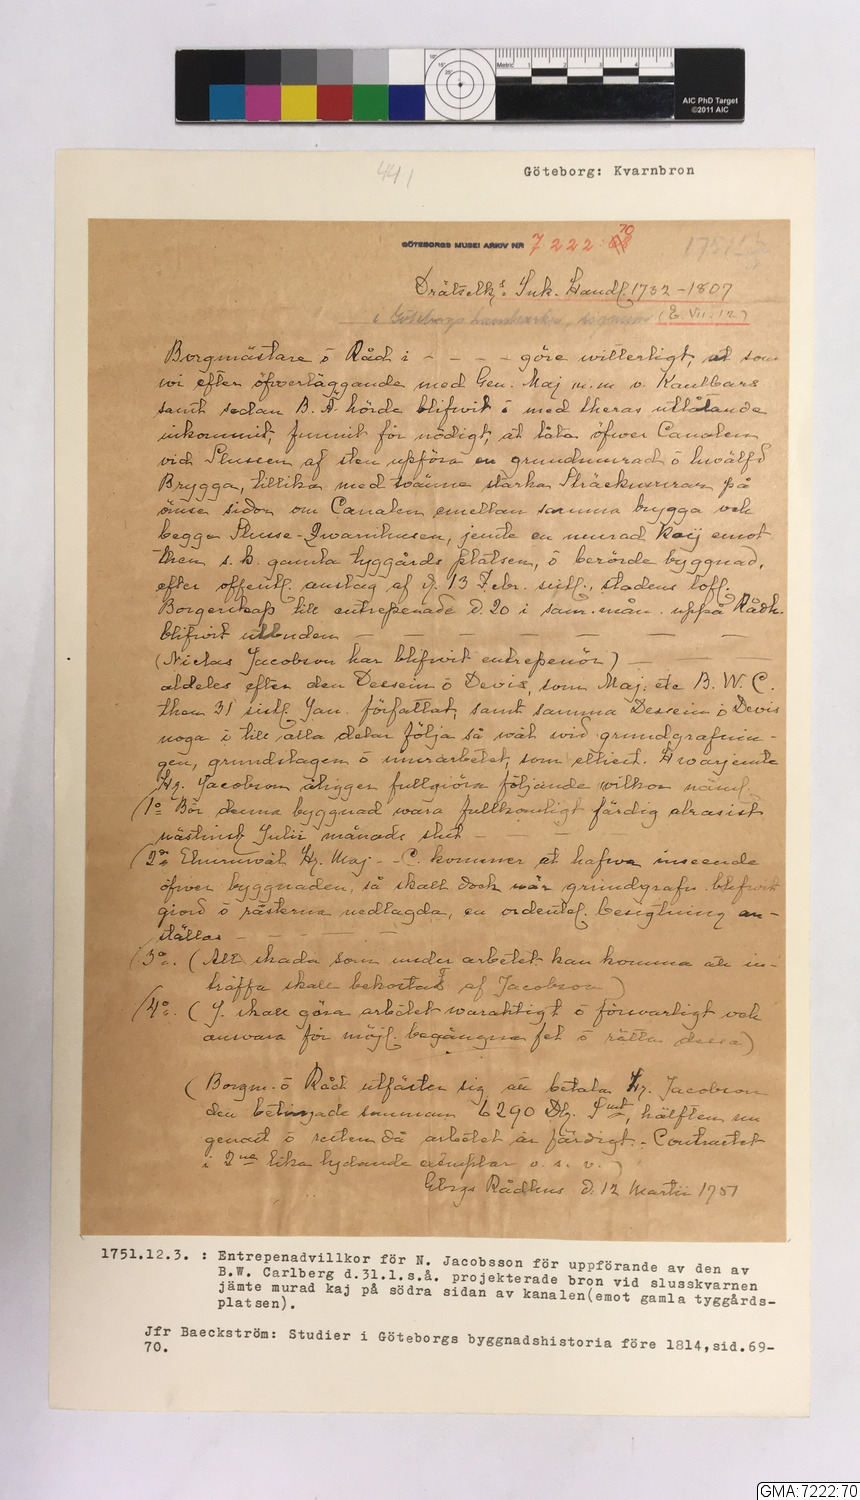 Metric 1 2 3 4 5
AIC PhD Target
©2011 AIC
441
Göteborg: Kvarnbron
GÖTEBORGS MUSEI ARKIV NR 7222:70
1751
Drätselk:s Ink. Handl. 1732-1807
i Göteborgs (E. VII. 12)
Borgmästare ö Råd i - - - - göre witterligt, at som
wi efter öfwerläggande med Gen. Maj m.m v. Kaulbars
samt sedan B. Ä. hörde blifwit ö med theras utlåtande
inkommit, funnit för nödigt, at låta öfwer Canalen
vid Slussen af sten upföra en grundmurad ö hwälfd
Brygga, tillika med twänne starka Sträckmurar på
ömse sidor om Canalen emellan samma brygga och
begge Slusse-Qwarnhusen, jemte en murad Kaij emot
then s.k. gamla tyggårds platsen, ö berörde byggnad,
efter offentl. anslag af d. 13 Febr. sistl., stadens lofl.
Borgerskap till entrepenade d. 20 i sam. mån. uppå Rådh.
blifwit utbuden — — — — — —
(Niclas Jacobson har blifwit entrepenör) — — —
aldeles efter den Dessein ö Devis, som Maj. etc B. W. C.
then 31 sistl. Jan. författat, samt samma Dessein ö Devis
noga i till alla delar följa så wäl wid grundgrafnin-
gen, grundslagen ö murarbetet, som eljest. Hwarjemte
Hr. Jacobson åligger fullgiöra följande wilkor näml.
(1o Bör denna byggnad wara fullkomligt färdig alrasist
nästinst. Julii månads slut - - -
(2o Ehuruwäl Hr. Maj - - C. kommer at hafwa inseende
öfwer byggnaden, så skall dock när grundgrafn. blifwit
giord ö rösterna nedlagda, en ordentl. besigtning an-
ställas - - - -
(3o. (All skada som under arbetet kan komma att in-
träffa skall bekostas af Jacobson)
(4o. (J. skall göra arbetet waraktigt ö förswarligt och
answara för möjl. begångna fel ö rätta dessa)
(Borgm. ö Råd utfäster sig att betala Hr. Jacobson
den betingade summan 6290 Dlr. Smt, hälften nu
genast ö resten då arbetet är färdigt. - Contractet
i 2ne lika lydande exemplar o.s.v.)
Gbgs Rådhus d. 12 Martii 1751
1751.12.3. : Entrepenadvillkor för N. Jacobsson för uppförande av den av
B.W. Carlberg d.31.1.s.å. projekterade bron vid slusskvarnen
jämte murad kaj på södra sidan av kanalen(emot gamla tyggårds-
platsen).
Jfr Baeckström: Studier i Göteborgs byggnadshistoria före 1814,sid.69-
70.
GMA:7222:70